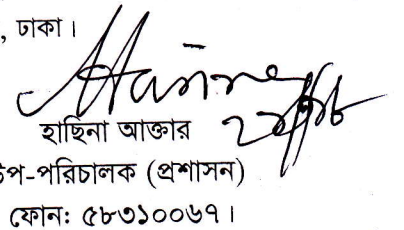 , ঢাকা।
হাছিনা আক্তার
উপ-পরিচালক (প্রশাসন)
ফোন: ৫৮৩১০০৬৭।